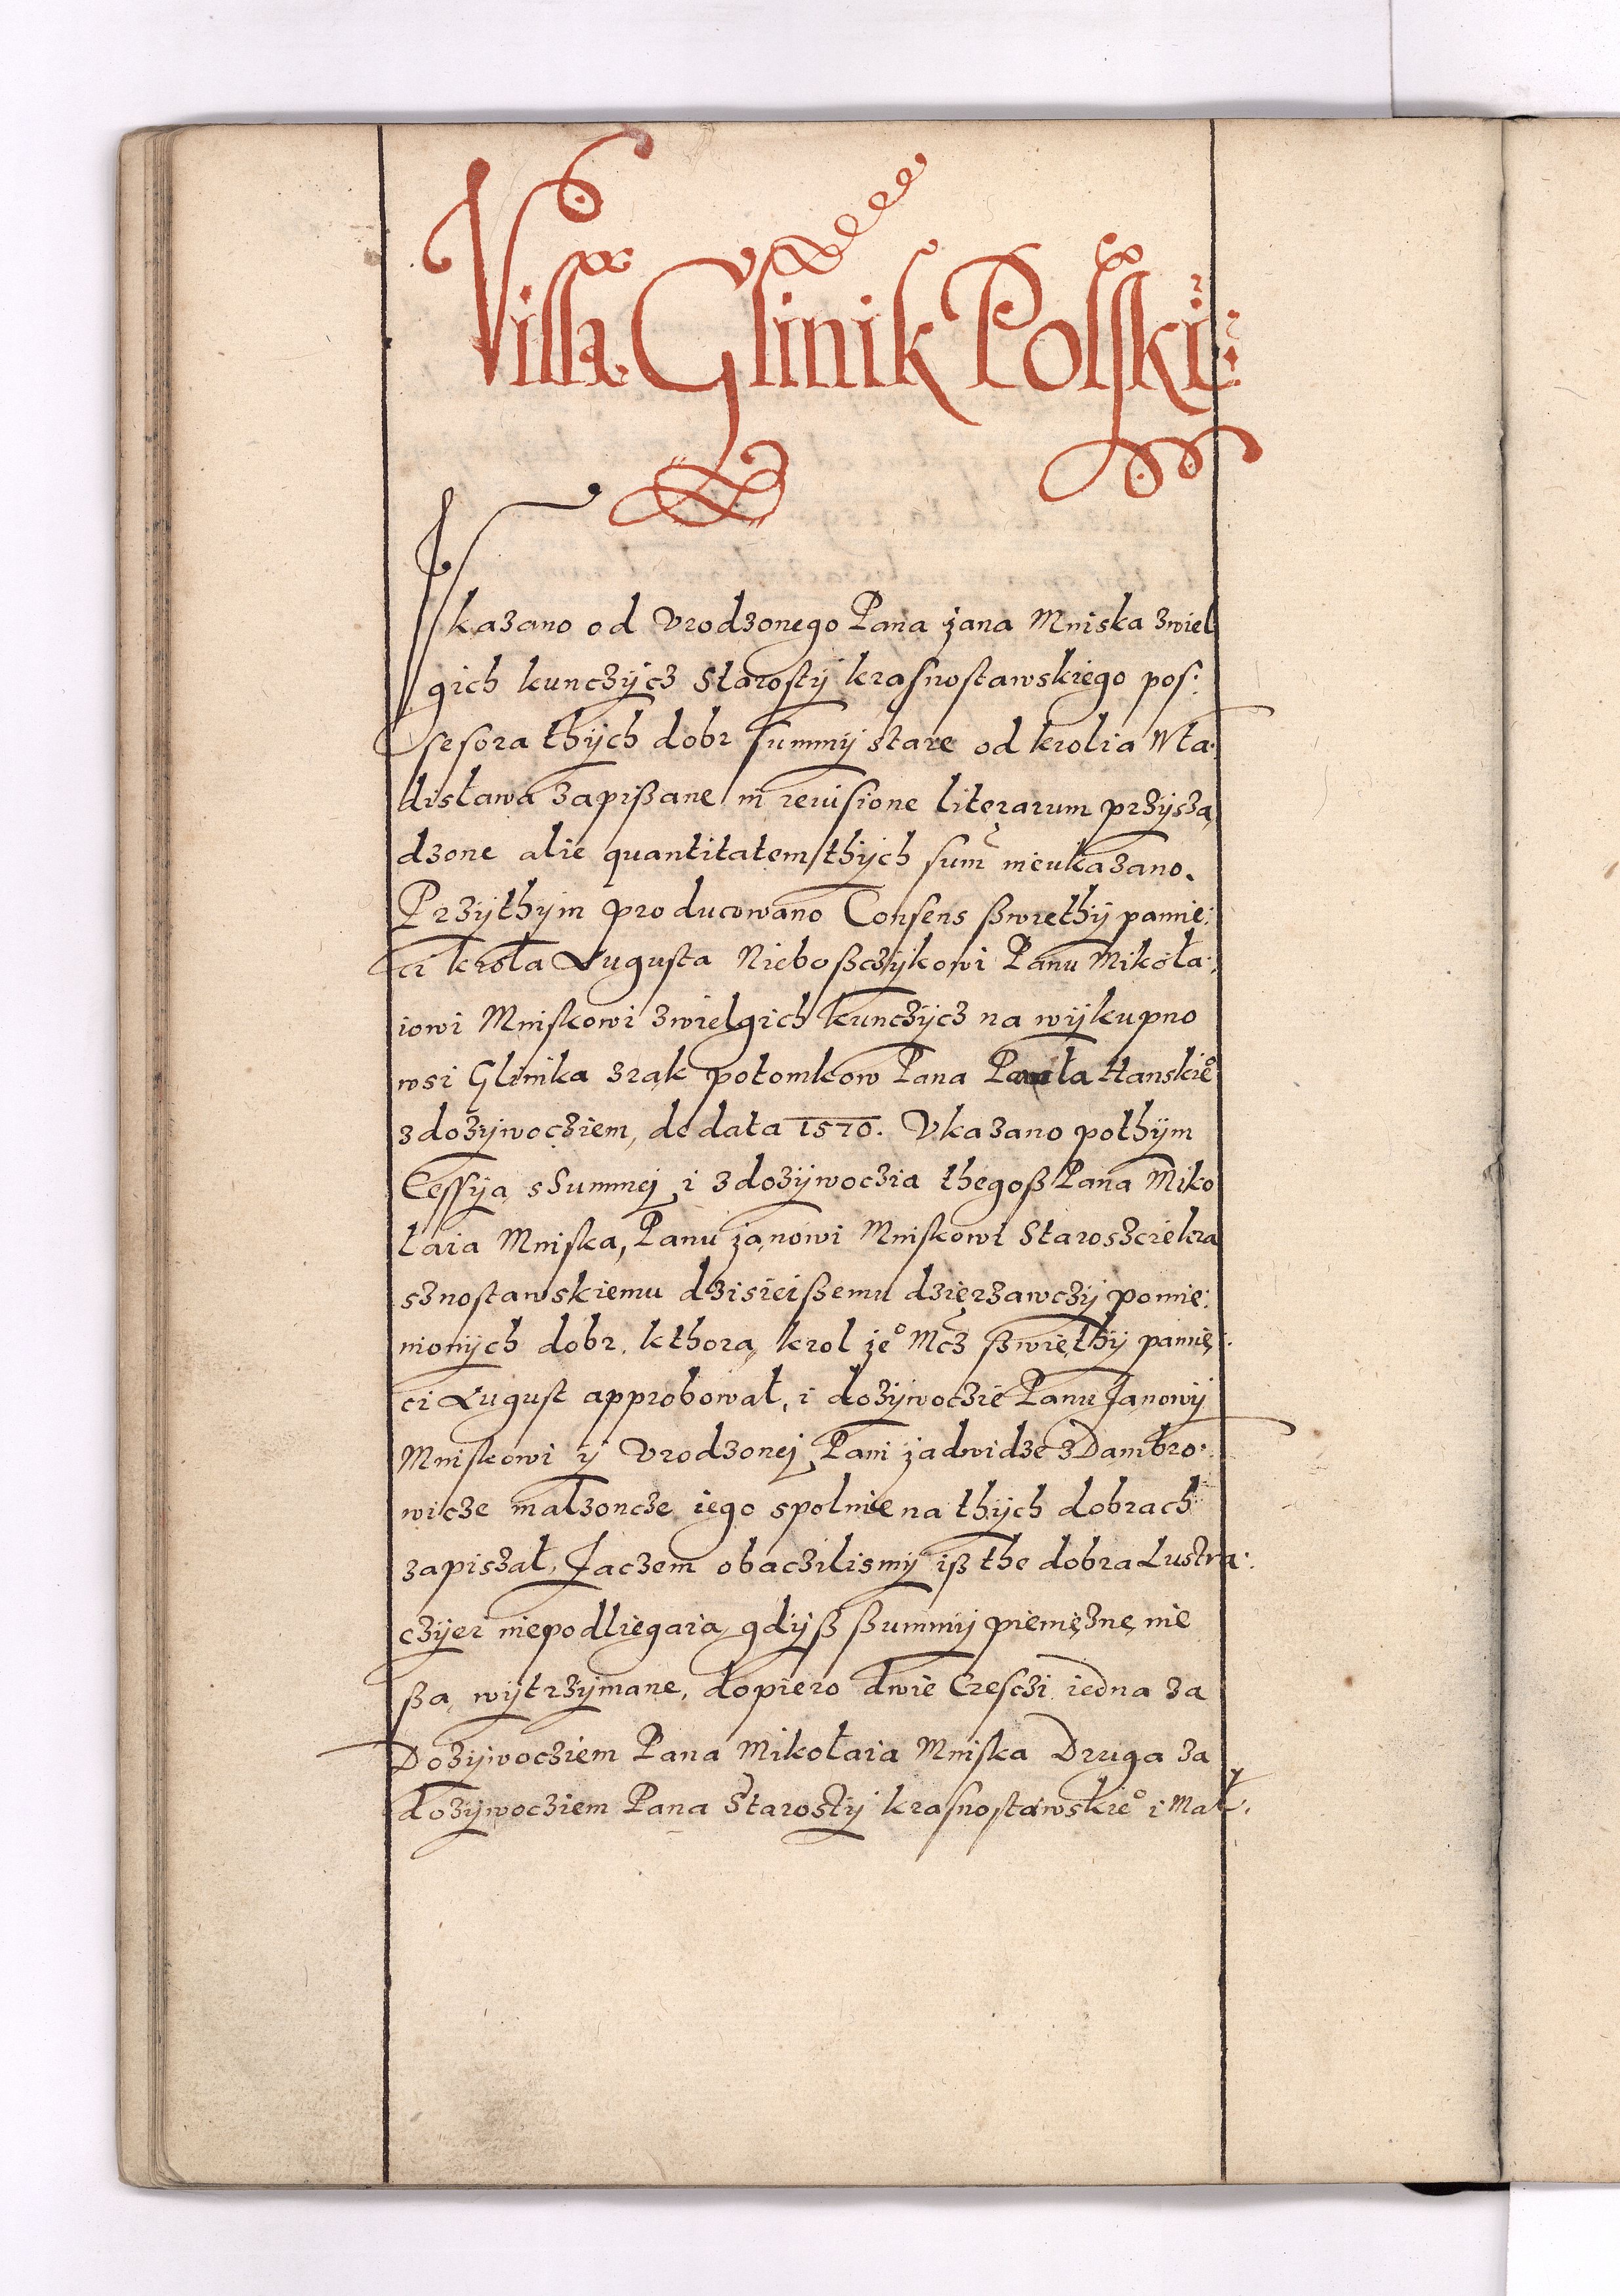 Villa Glinik Polski
Vkazano od Vrodzonego Pana jana Mniska zwiel
gich kunczÿcz Starostÿ krasnostawskiego pos:
sesora thÿch dobr summÿ stare od krolia Wła:
disława zapißane in reuisione literarum przÿszą
dzone alie quantitatem thÿch sum̃ nieukazano.
Przÿthÿm producowano Consens ßwiethÿ pamie:
ci krola Augusta Nieboßczÿkowi Panu Mikoła:
iowi Mniskowi zwielgich kunczÿcz na wÿkupno
wsi Glinika zrąk potomkow Pana Pawła Hanskieº
zdożÿwoczięm, de data 1570. Vkazano pothÿm
Cessÿą sSummej i zdożÿwoczia thegoß Pana Miko
łaia Mniska, Panu janowi Mniskowi Staroszcie kra
sznostawskiemu dzisieißemu dzięrzawczÿ pomie:
nionÿch dobr. kthorą krol jeº Mcz ßwięthÿ pamię:
ci August approbował, i dożÿwoczie Panu Janowÿ
Mniskowi ÿ Vrodzonej Pani jadwidze z Dambro:
wicze małzoncze iego spolnie na thÿch dobrach
zapiszał. Zaczem obaczilismÿ iß the dobra Lustra:
czÿei niepodliegaią gdÿß ßummÿ pieniężne nie
ßą wÿtrzÿmane, dopiero dwie Cresczi iedna za
Dożÿwocziem Pana Mikołaia Mniska Druga za
dożÿwocziem Pana Starostÿ krasnostawskieº i Mał.